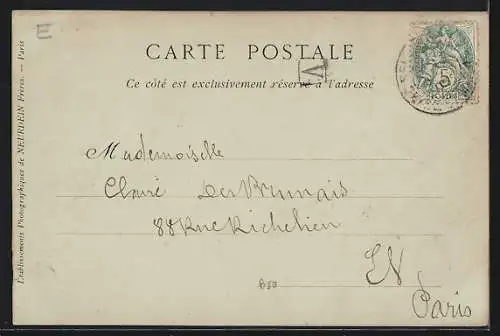 E
CARTE POSTALE
Ce côté est exclusivement réservé à l'adresse
A
5
Etablissements Photographiques de NEURDEIN Frères. — Paris
Mademoiselle
Claire Des Brunnais
88 Rue Richelieu
EV
Paris
B50